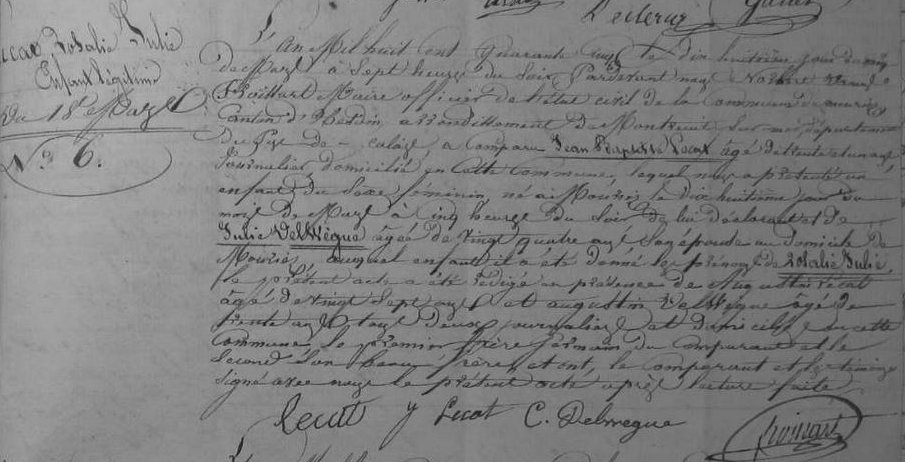 Leclercq
Rosalie Julie
Enfant légitime
Du 18 Mars
N° 6.
L'An Mil huit cent quarante neuf le dix huitième jour du mois
de Mars à Sept heures du Soir Pardevant nous
Froissart Maire officier de l'état civil de la Commune de mouriez
Canton d'hesdin arrondissement de Montreuil Sur mer département
du Pas de - calais a comparu Jean Baptiste Lecat âgé de trente et un ans
Journalier, domicilié en Cette Commune, lequel nous a présenté un
enfant du Sexe féminin, né à Mouriez le dix huitième jour du
mois de Mars à cinq heures du Soir de lui déclarant et de
Julie Delwègue âgée de vingt quatre ans Son épouse au domicile de
Mouriez, auquel enfant il a été donné les prénoms de Rosalie Julie,
le présent acte a été rédigé en présence de Augustin Lécat
âgé de vingt Sept ans et augustin Delwègue âgé de
trente ans tous deux journaliers et domiciliés en cette
Commune, le premier frère germain du comparant et le
Second Son beau frère, et ont, le comparant et les témoins
Signé avec nous le présent acte après lecture faite.
Lecat y Lecat C. Delwegue
froissart